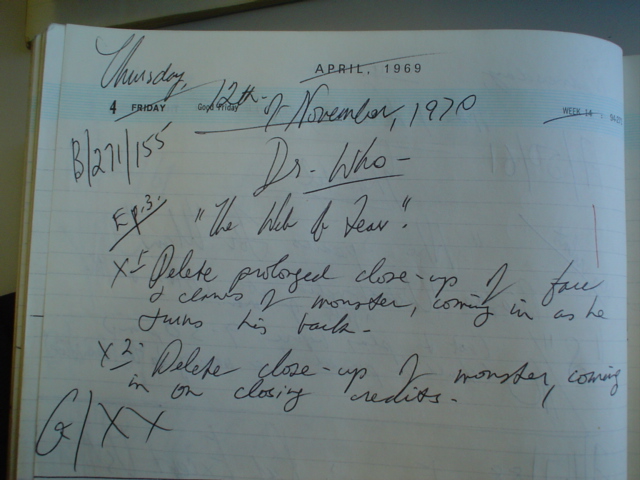 APRIL, 1969
Thursday,
4 FRIDAY Good Friday WEEK 14
12th of November, 1970
B/271/155
Dr. Who -
Ep.3. "The Web of Fear".
X 1- Delete prolonged close-up of face
& claws of monster, coming in as he
turns his back.
X 2- Delete close-up of monster, coming
in on closing credits.
G/XX